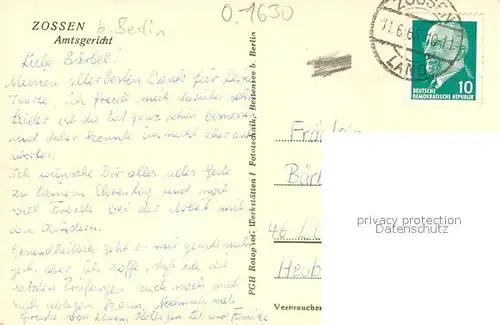 ZOSSEN b. Berlin
Amtsgericht
0.1630
ZOSSEN
11.6.6
DEUTSCHE
DEMOKRATISCHE REPUBLIK
10
Liebe Bärbel!
Meinen allerbesten Dank für Deine
Ich freute mich darüber sehr
Leider ist die Zeit ganz schön bemessen
und daher konnte ich nicht eher ant
worten.
Ich wünsche Dir alles, alles Gute
zu Deinem Ehrentag und noch
viel Freude bei der Arbeit mit
den Kindern.
Gesundheitlich geht es mir gerade nicht
gut, aber ich hoffe, daß ich die
letzten Prüfungen auch noch mit
kann. Nochmals viele
Grüße von Deinem Kollegen und Familie
PGH Rotophot, Werkstätten f. Fototechnik, Bestensee b. Berlin
Bärb
privacy protection
Datenschutz
Verbraucher